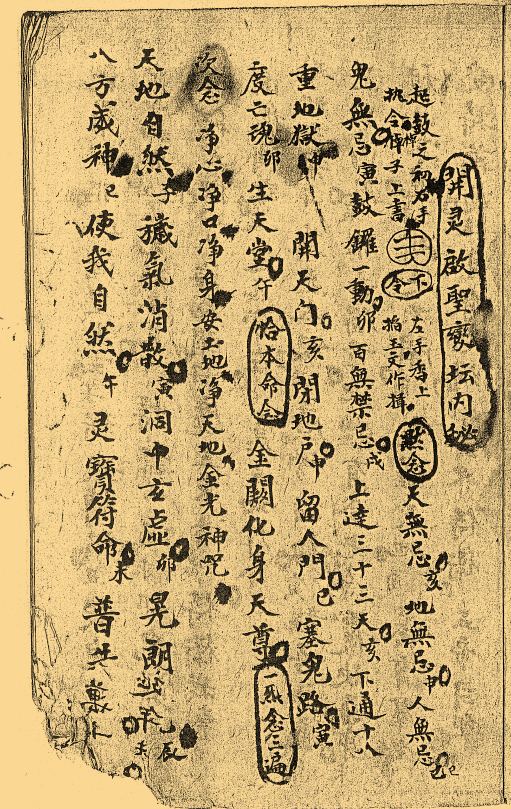 開灵啟聖竅坛内秘
起鼓之初右手
执令牌子上書
下令
左手香上
掐玉文作揖
默念 天無忌亥 地無忌申 人無忌巳
鬼無忌寅 鼓鑼一動卯 百無禁忌戌 上達三十三天亥 下通十八
重地獄申 開天门亥 閉地户申 留人門巳 塞鬼路寅
度亡魂卯 生天堂午 恰本命令 金闕化身天尊 一炁念三遍
次念 净心净口净身安土地净天地金光神咒
天地自然子 穢氣消散寅 洞中玄虚卯 晃朗 辰
八方威神巳 使我自然午 灵寶符命未 普告